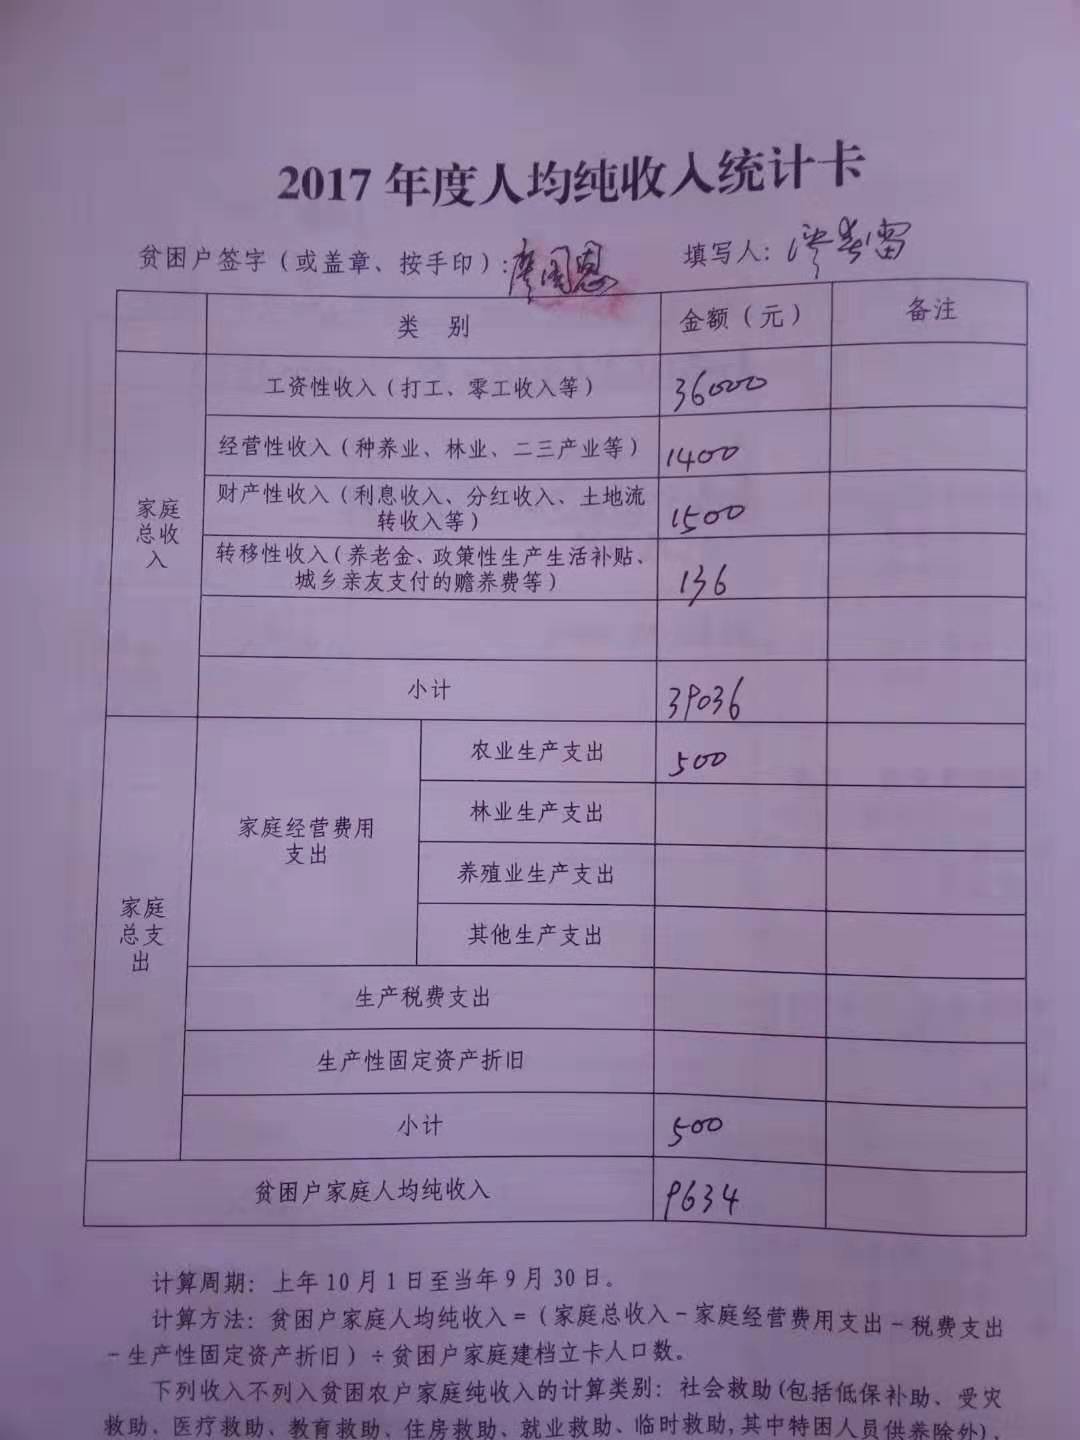 2017年度人均纯收入统计卡
贫困户签字（或盖章、按手印）：廖国恩 填写人：廖春雷
类 别 金额（元） 备注
家庭
总收
入
工资性收入（打工、零工收入等） 36000
经营性收入（种养业、林业、二三产业等） 1400
财产性收入（利息收入、分红收入、土地流
转收入等） 1500
转移性收入（养老金、政策性生产生活补贴、
城乡亲友支付的赡养费等） 136
小计 39036
家庭
总支
出
家庭经营费用
支出
农业生产支出 500
林业生产支出
养殖业生产支出
其他生产支出
生产税费支出
生产性固定资产折旧
小计 500
贫困户家庭人均纯收入 9634
计算周期：上年10月1日至当年9月30日。
计算方法：贫困户家庭人均纯收入=（家庭总收入-家庭经营费用支出-税费支出
-生产性固定资产折旧）÷贫困户家庭建档立卡人口数。
下列收入不列入贫困农户家庭纯收入的计算类别：社会救助(包括低保补助、受灾
救助、医疗救助、教育救助、住房救助、就业救助、临时救助,其中特困人员供养除外)，